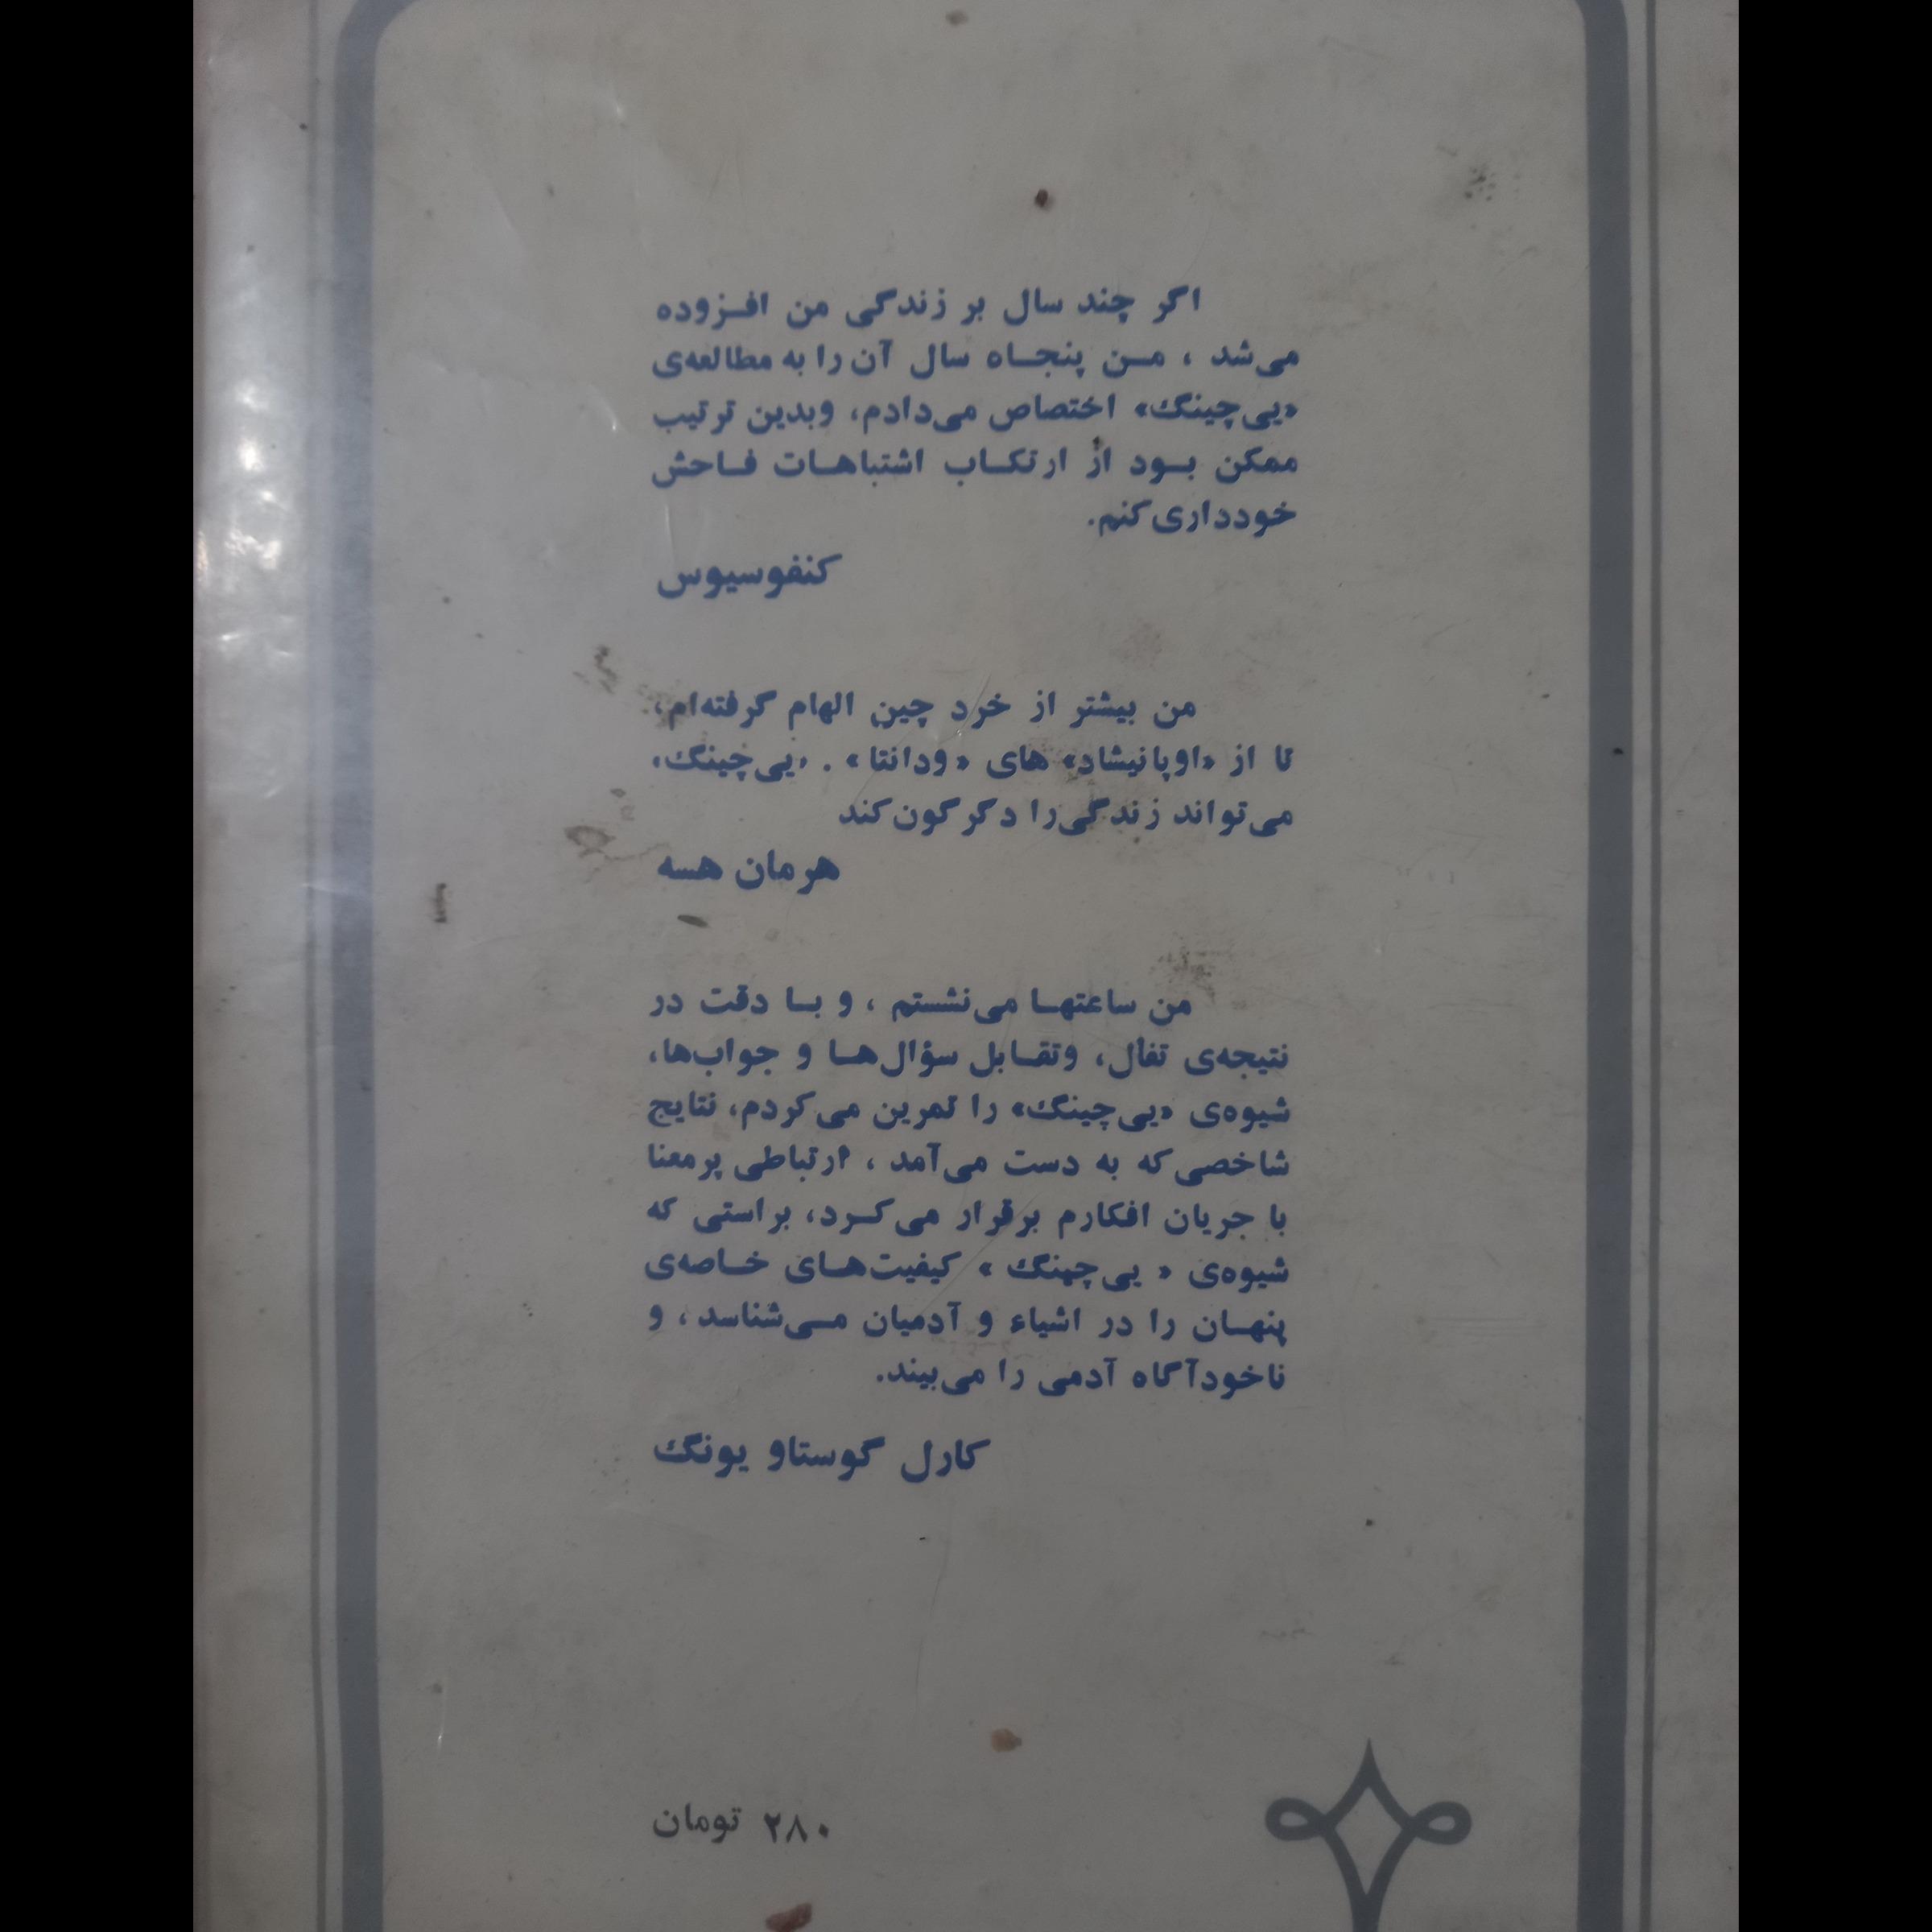 اگر چند سال بر زندگی من افـزوده
می‌شد ، مـن پنجـاه سال آن را به مطالعه‌ی
«یی‌چینگ» اختصاص می‌دادم، وبدین ترتیب
ممکن بـود از ارتکـاب اشتباهـات فـاحش
خودداری‌کنم.
کنفوسیوس
من بیشتر از خرد چین الهام گرفته‌ام،
تا از «اوپانیشاد» های «ودانتا» . «یی‌چینگ»
می‌تواند زندگی‌را دگرگون‌کند
هرمان هسه
من ساعتهـا می‌نشستم ، و بـا دقت در
نتیجه‌ی تفأل، وتقـابل سؤال‌هـا و جواب‌ها،
شیوه‌ی «یی‌چینگ» را تمرین می‌کردم، نتایج
شاخصی‌که به دست می‌آمد ، ارتباطی پرمعنا
با جریان افکارم برقرار می‌کـرد، براستی که
شیوه‌ی « یی‌چینگ » کیفیت‌هـای خـاصه‌ی
پنهـان را در اشیاء و آدمیان مـی‌شناسد ، و
ناخودآگاه آدمی را می‌بیند.
کارل گوستاو یونگ
۲۸۰ تومان